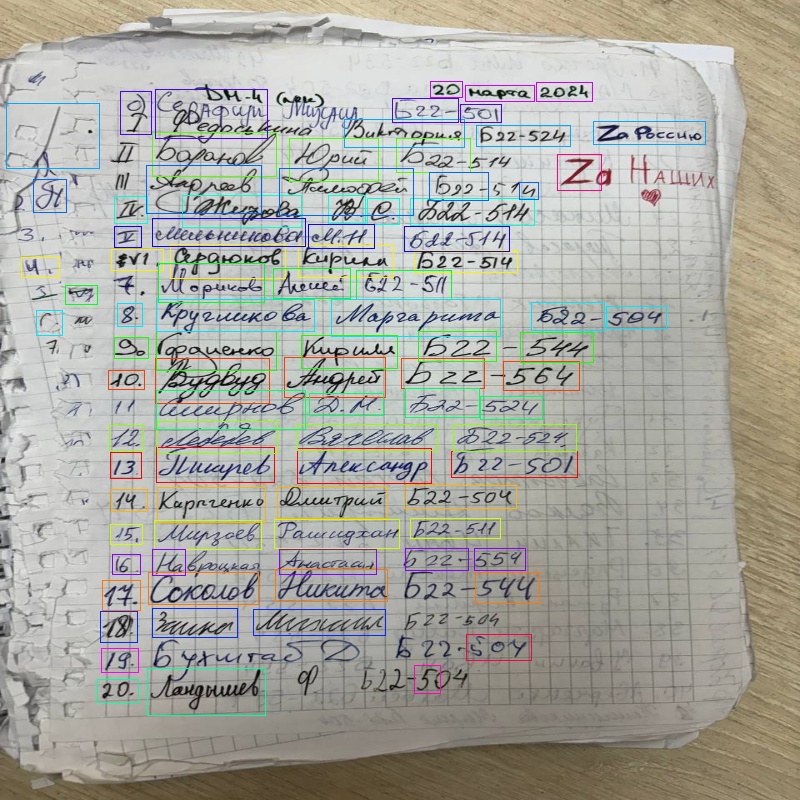 ДМ-4 (прк) 20 марта 2024
0) Серафим Михаил Б22-501
I Федоськина Виктория Б22-524 Zа Россию
II Баранов Юрий Б22-514
III Андреев Тимофей Б22-514 Zа Наших
IV. Жирова Б22-514
V Мельникова М.Н. Б22-514
VI. Сердюков Кирилл Б22-514
7. Мориков Алексей Б22-511
8. Кругликова Маргарита Б22-504
9. Гордиенко Кирилл Б22-544
10. Вудвуд Андрей Б22-564
11 Смирнов Д.М. Б22-524
12. Лебедев Вячеслав Б22-524
13. Писарев Александр Б22-501
14. Карпченко Дмитрий Б22-504
15. Мирзоев Рашидхан Б22-511
16. Навроцкая Анастасия Б22-554
17. Соколов Никита Б22-544
18. Михаил Б22-504
19. Бухштаб Д Б22-504
20. Ландышев Ф Б22-504